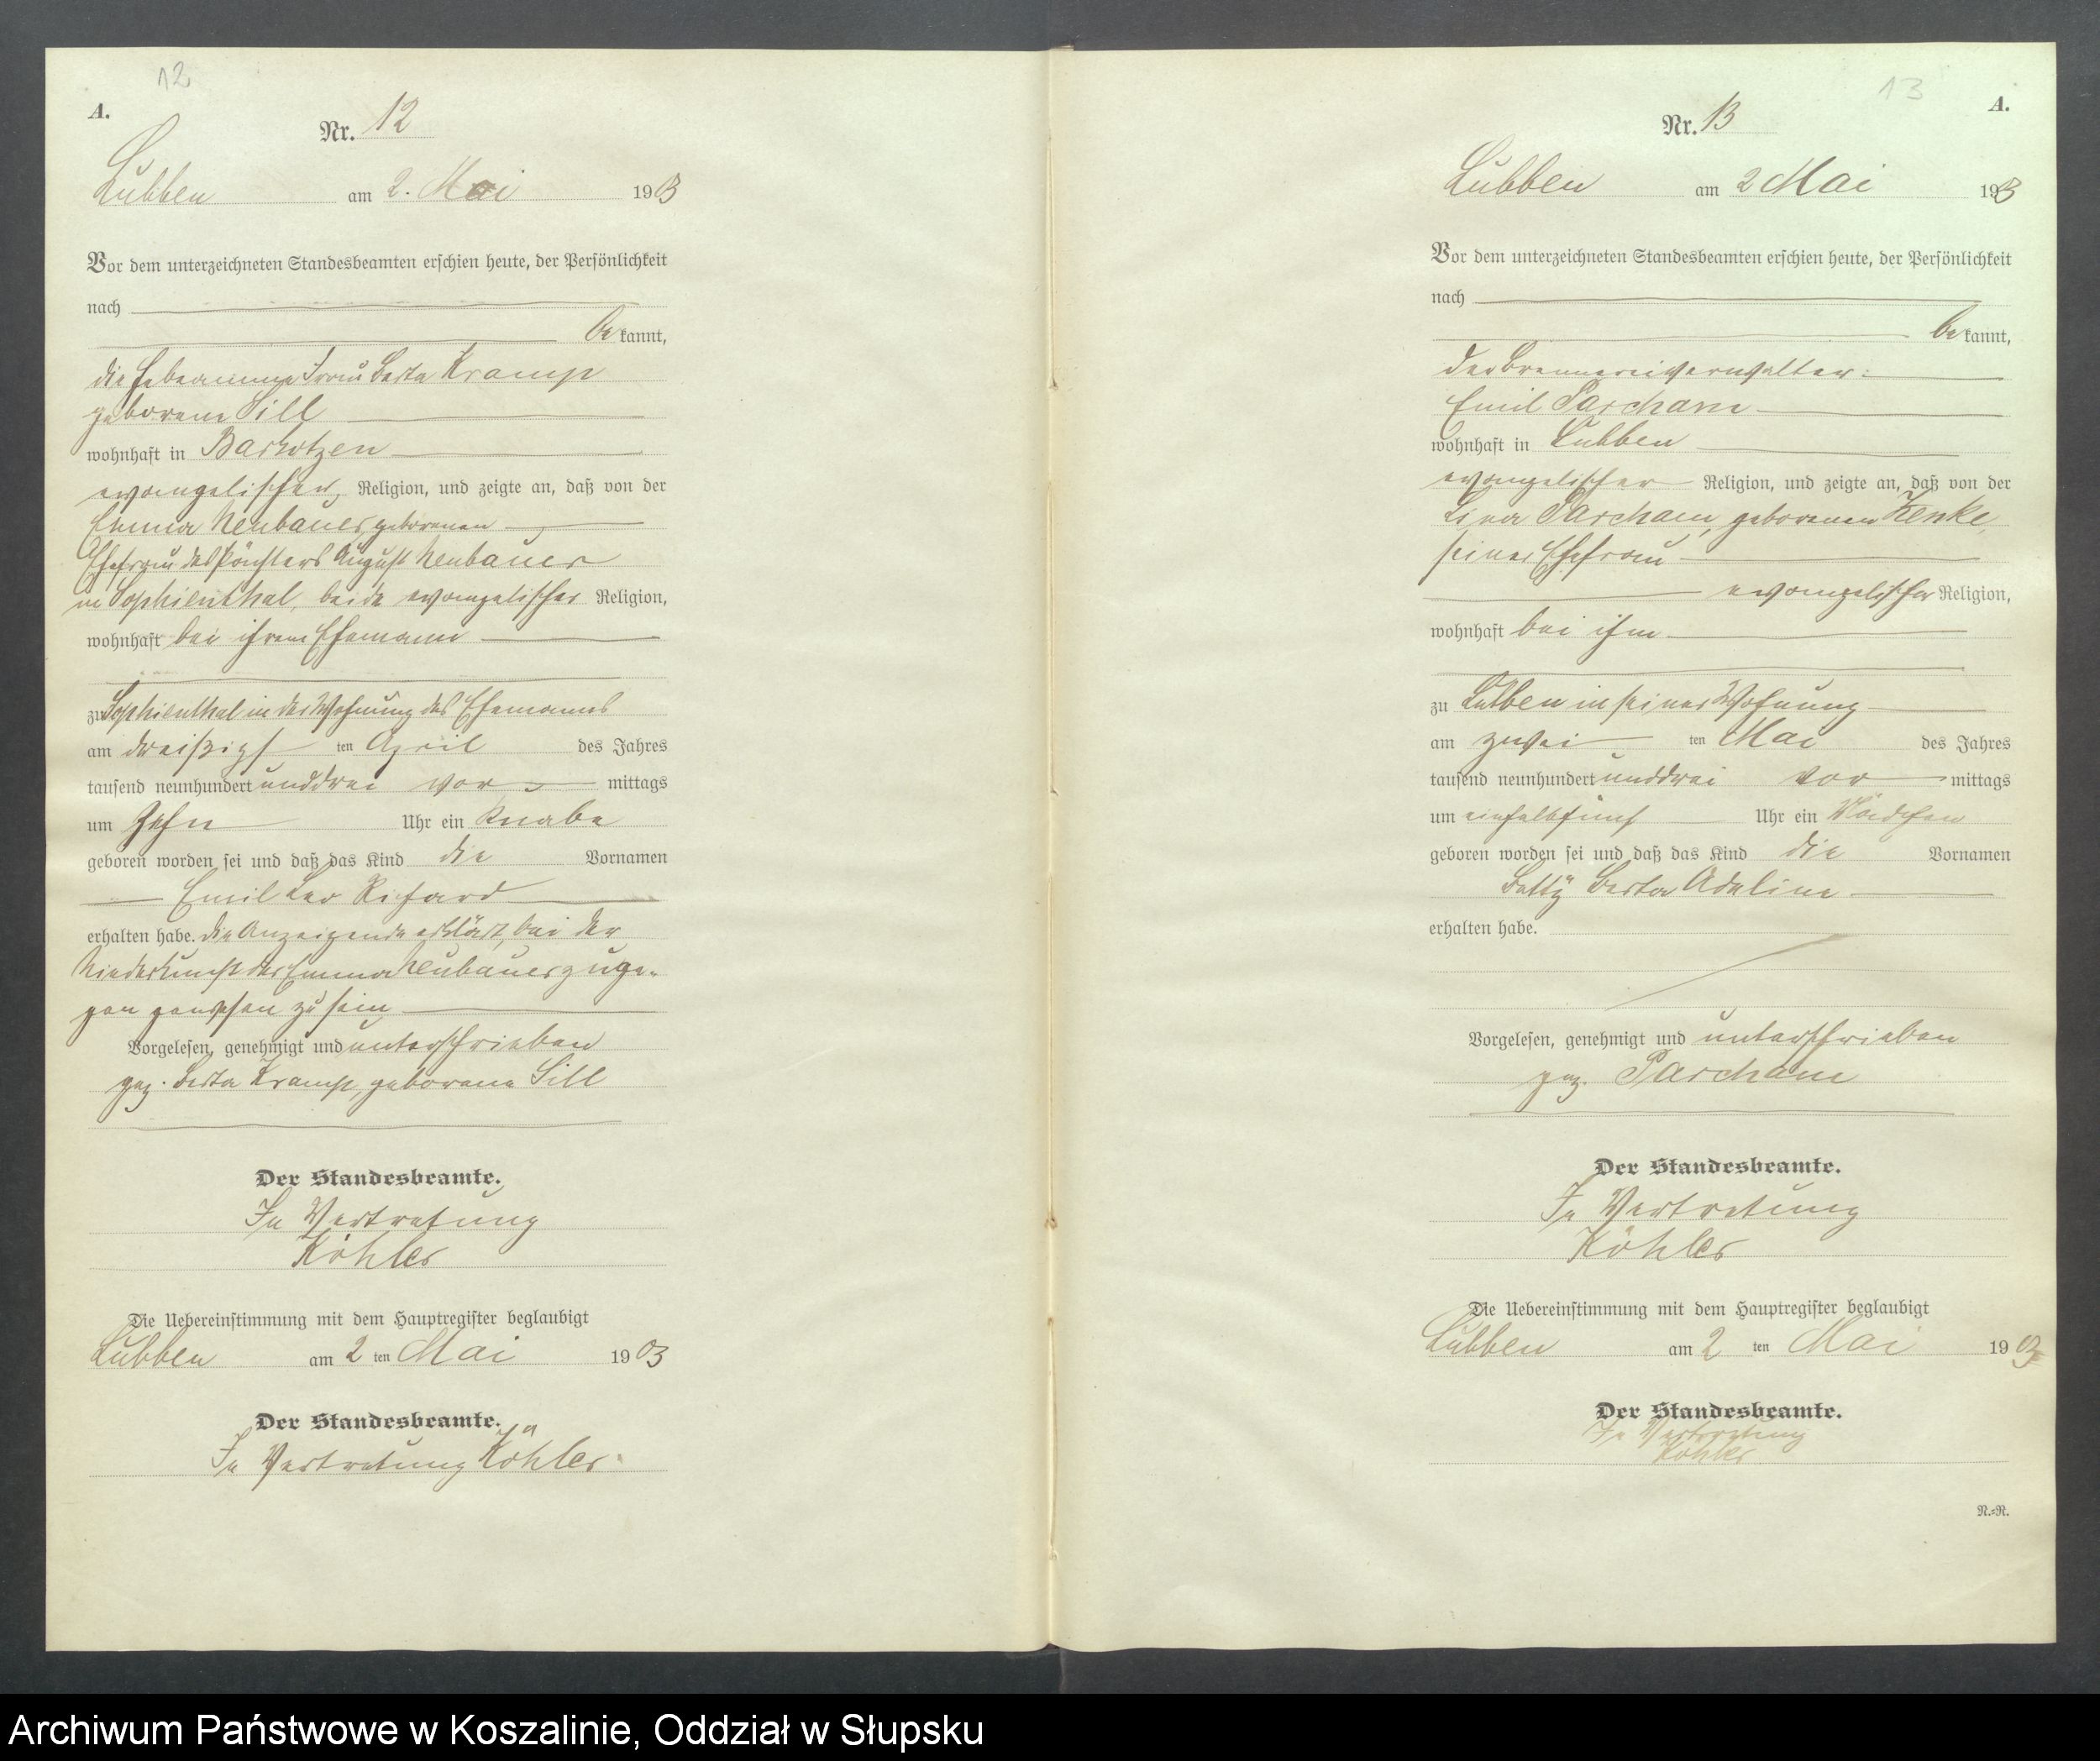 12
A.
Nr. 12
Lubben am 2. Mai 1903
Vor dem unterzeichneten Standesbeamten erschien heute, der Persönlichkeit
nach
be kannt,
die Hebeamme Frau Berta Kramp
geborene Sill
wohnhaft in Barkotzen
evangelischer Religion, und zeigte an, daß von der
Emma Neubauer, geborenen
Ehefrau des August Neubauer
in Sophienthal, beide evangelischer Religion,
wohnhaft bei ihrem Ehemann
zu Sophienthal in der Wohnung des Ehemanns
am dreißigs ten April des Jahres
tausend neunhundert unddrei vor mittags
um Zehn Uhr ein Knabe
geboren worden sei und daß das Kind die Vornamen
Emil Leo Richard
erhalten habe. die Anzeigende erklärt, bei der
Niederkunft der Emma Neubauer zuge-
gen gewesen zu sein
Vorgelesen, genehmigt und unterschrieben
gez. Berta Kramp, geborene Sill
Der Standesbeamte.
In Vertretung
Köhler
Die Uebereinstimmung mit dem Hauptregister beglaubigt
Lubben am 2 ten Mai 1903
Der Standesbeamte.
In Vertretung Köhler
13
A.
Nr. 13
Lubben am 2 Mai 1903
Vor dem unterzeichneten Standesbeamten erschien heute, der Persönlichkeit
nach
be kannt,
der Brennereiverwalter:
Emil Parcham
wohnhaft in Lubben
evangelischer Religion, und zeigte an, daß von der
Parcham, geborenen
seiner Ehefrau
evangelischer Religion,
wohnhaft bei ihm
zu Lubben in seiner Wohnung
am zwei ten Mai des Jahres
tausend neunhundert unddrei vor mittags
um einhalbfünf Uhr ein Mädchen
geboren worden sei und daß das Kind die Vornamen
Betty Berta Adeline
erhalten habe.
Vorgelesen, genehmigt und unterschrieben
gez. Parcham
Der Standesbeamte.
In Vertretung
Köhler
Die Uebereinstimmung mit dem Hauptregister beglaubigt
Lubben am 2 ten Mai 1903
Der Standesbeamte.
In Vertretung
Köhler
N.=R.
Archiwum Państwowe w Koszalinie, Oddział w Słupsku